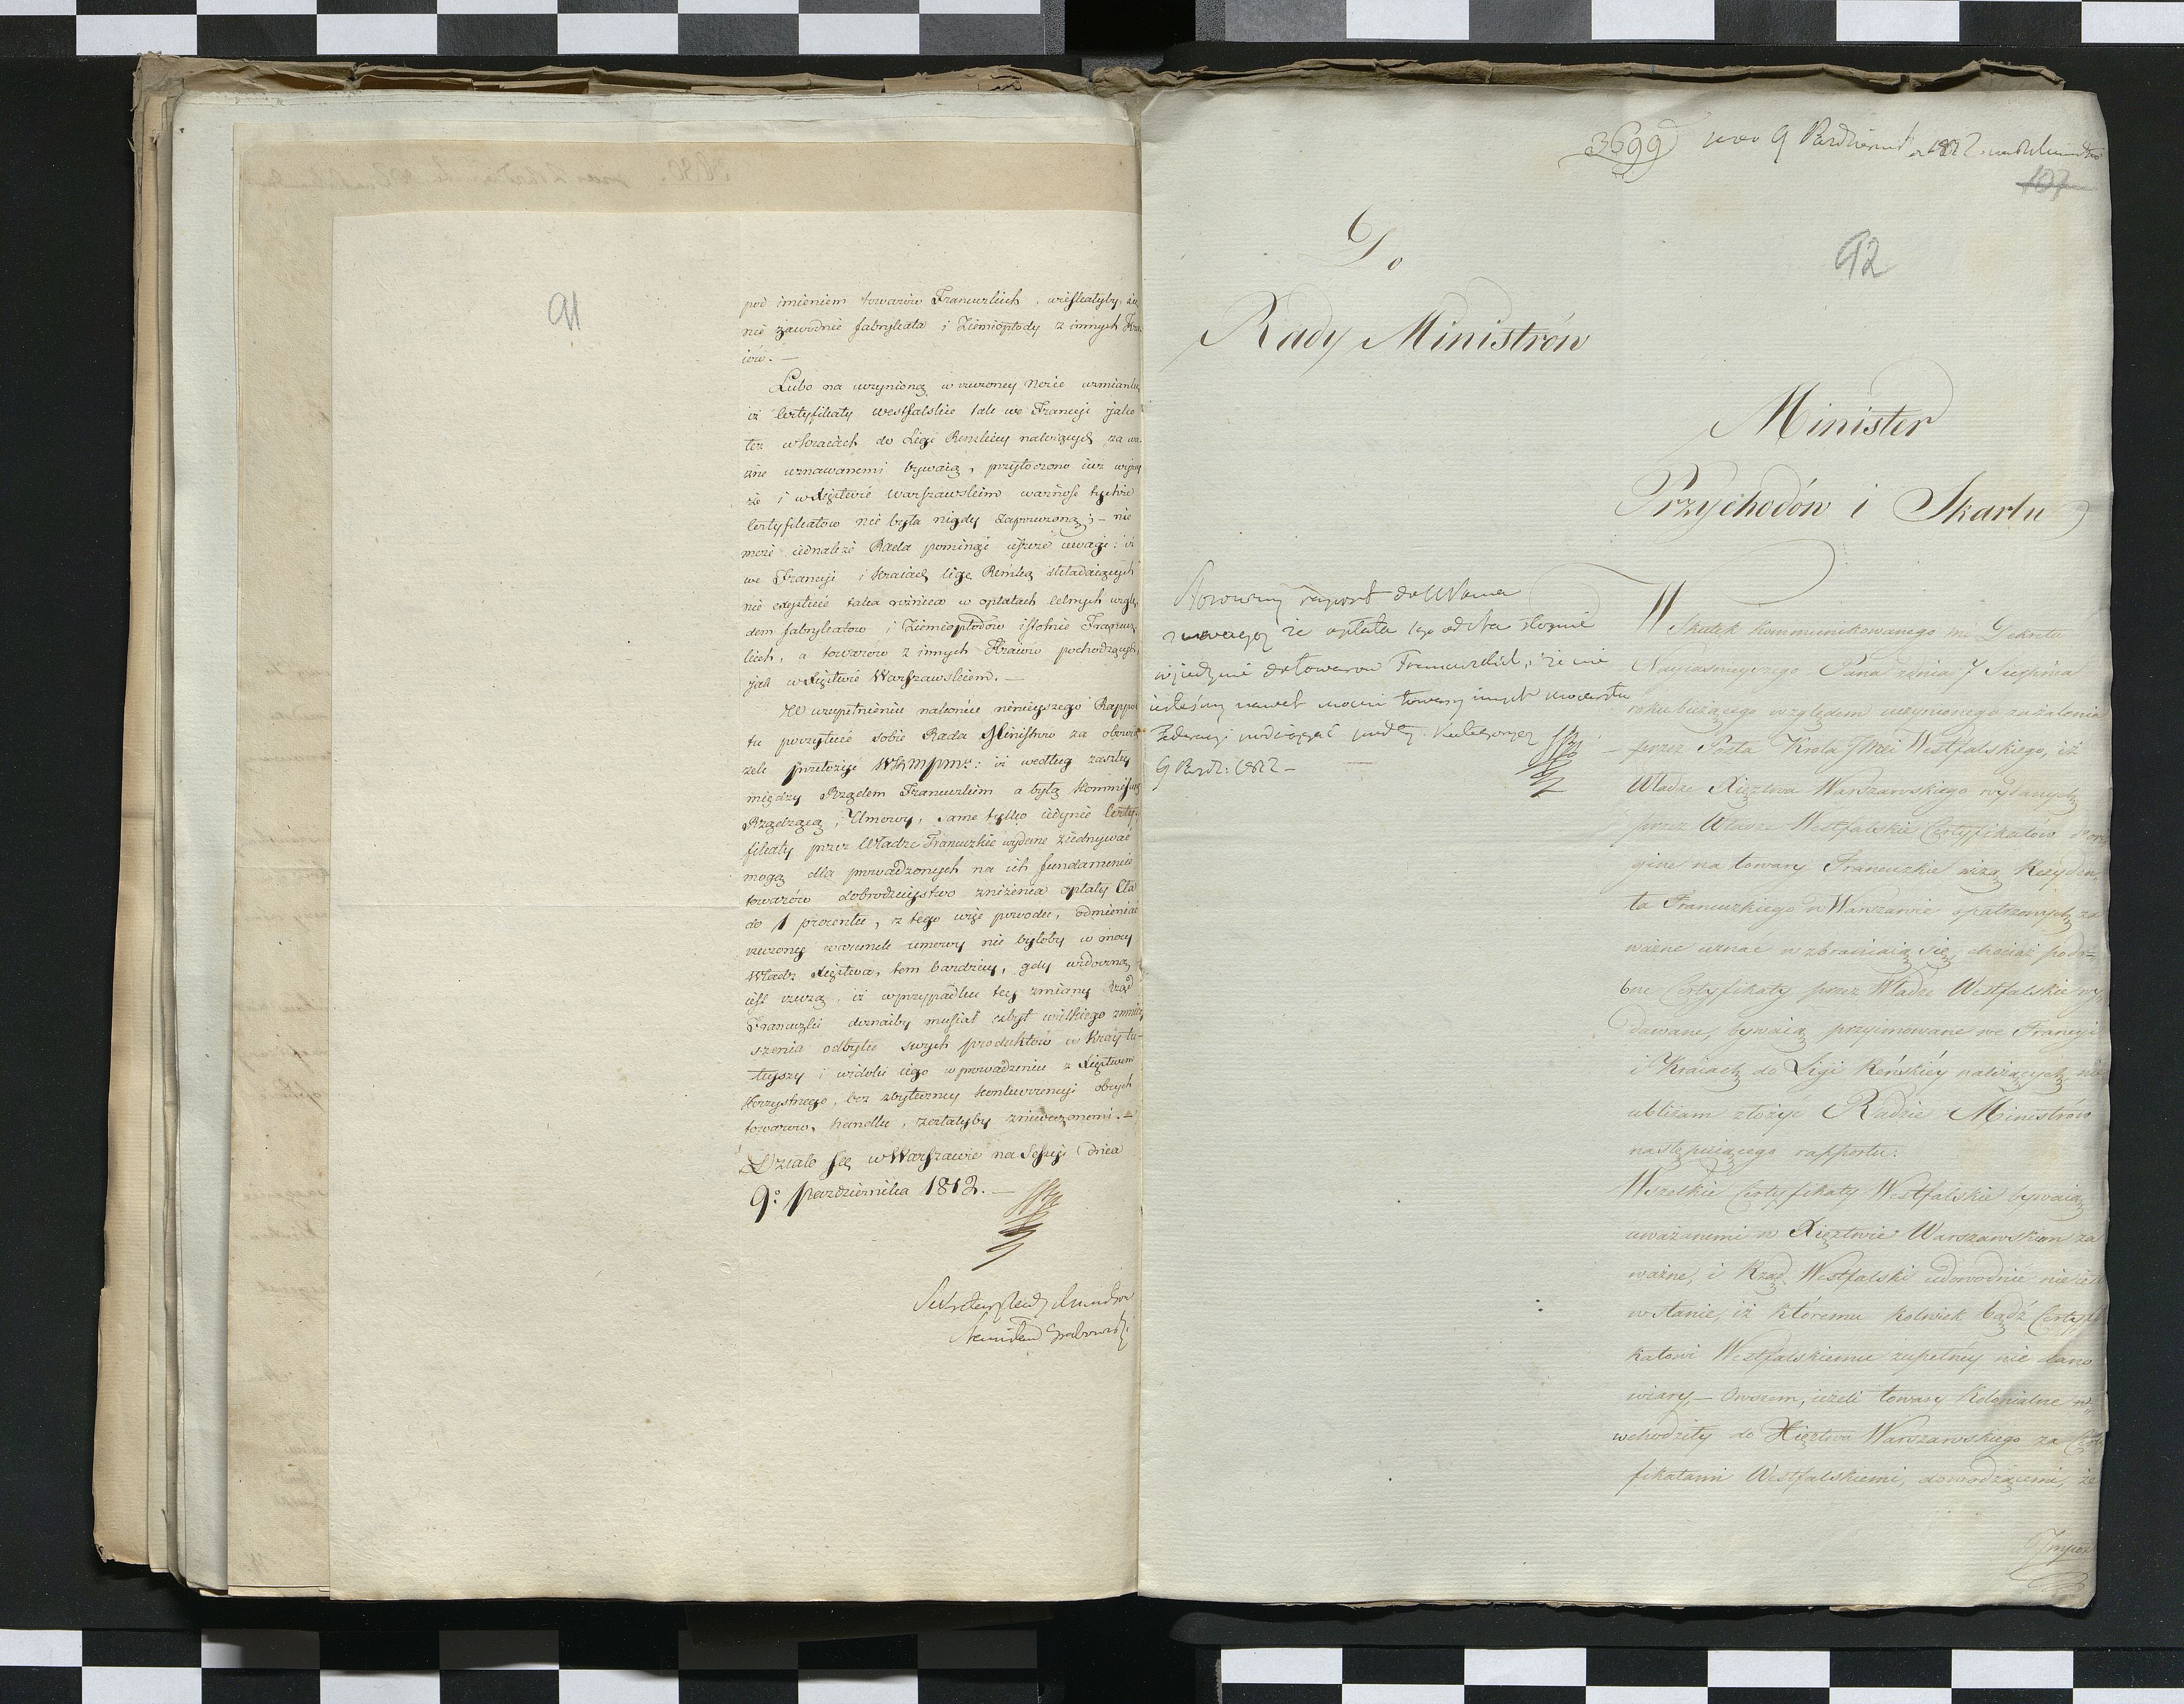 91
pod imieniem towarów Francuzkich, wiesłałyby się
nie zawodnie fabrykata i Ziemiopłody z innych Kra-
iów. —
Lubo na uczynioną w rzeczoney Nocie wzmiankę
iż Certyfikaty westfalskie tak we Francyi jako
też w kraiach do Ligi Renskiey należących za wa-
żne uznawanemi bywaią, przytoczono iuż wyżey
że i w Xięstwie Warszawskim ważność tychże
Certyfikatów nie była nigdy zaprzeczoną; – nie
może iednakże Rada pominąć ieszcze uwagi: iż
we Francyi i kraiach ligę Reńską składaiących
nie exystuie taka różnica w opłatach celnych wzglę-
dem fabrykatow i Ziemiopłodów istotnie Francuz-
kich, a towarow z innych Kraiow pochodzących,
jak w Xięstwie Warszawskiem. —
W uzupełnieniu nakoniec ninieyszego Rappor-
tu poczytuie sobie Rada Ministrów za obowią-
zek przełożyć WKMPMu: iż według zaszłey
między Rządem Francuzkim a byłą Kommissyą
Rządzącą, Umowy, same tylko iedynie Certy-
fikaty przez Władze Francuzkie wydane ziednywać
mogą dla prowadzonych na ich fundamencie
towarów dobrodzieystwo zniżenia opłaty Cła
do 1 procentu, z tego więc powodu, odmieniać
rzeczony warunek umowy nie byłoby w mocy
Władz Xięstwa, tem bardziey, gdy widoczną
iest rzeczą, iż w przypadku tey zmiany Rząd
Francuzki doznaćby musiał zbyt wielkiego zmniey-
szenia odbytu swych produktów w Kraj tu-
teyszy i widoki iego w prowadzeniu z Xięstwem
korzystnego, bez zbyteczney konkurrencyi obcych
towarow, handlu, zostałyby zniweczonemi. —
Działo się w Warszawie na Sessyi dnia
9º Pazdziernika 1812. —
Sekretarz Rady Ministrow
Stanisław Grabowski
3699 9 Pazdziernik 1812
107
92
Do
Rady Ministrów
Minister
Przychodów i Skarbu
raport do
że opłata tego
do towarow Francuzkich, i że nie
nawet towary innych
podług
9 Pazdz: 1812 —
W Skutek kommunikowanego mi Dekretu
Nayiasnieyszego Pana z dnia 7 Sierpnia
roku bieżącego względem uczynionego zażalenia
przez Posła Króla JMci Westfalskiego, iż
Władze Xięztwa Warszawskiego wydanych
przez Władze Westfalskie Certyfikatów d'ori-
gine na towary Francuzkie wizą Rezyden-
ta Francuzkiego w Warszawie opatrzonych za
ważne uznać wzbraniaią się, chociaż podo-
bne Certyfikaty przez Władze Westfalskie wy-
dawane, bywaią przyimowane we Francyi
i Kraiach do Ligi Reńskiéy należących nie
ubliżam złożyć Radzie Ministrów
następuiącego rapportu:
Wszelkie Certyfikaty Westfalskie bywaią
uważanemi w Xięztwie Warszawskiem za
ważne, i Rząd Westfalski udowodnić nie iest
w stanie, iż któremu kolwiek bądź Certyfi-
katowi Westfalskiemu zupełney nie dano
wiary, – Owszem, ieżeli towary Kolonialne
wchodziły do Xięztwa Warszawskiego za Certy-
fikatami Westfalskiemi, dowodzącemi, że